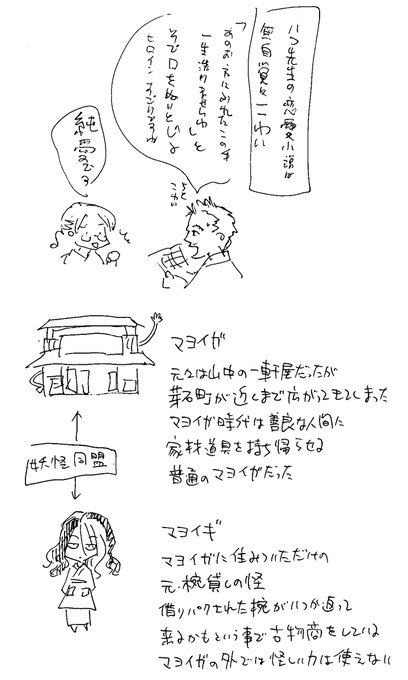 先生の恋愛小説は
無自覚にこわい
「あのお方にふれたこの手
一生洗いませんわ」と
そで口をぬいとじる
ヒロイン
こわい
純愛です
マヨイガ
元々は山中の一軒屋だったが
芽石町が近くまで広がってきてしまった
マヨイガ時代は善良な人間に
家材道具を持ち帰らせる
普通のマヨイガだった
妖怪同盟
マヨイギ
マヨイガに住みついただけの
元・椀貸しの怪
借りパクされた椀がいつか返って
来るかもという事で古物商をしている
マヨイガの外では怪しい力は使えない